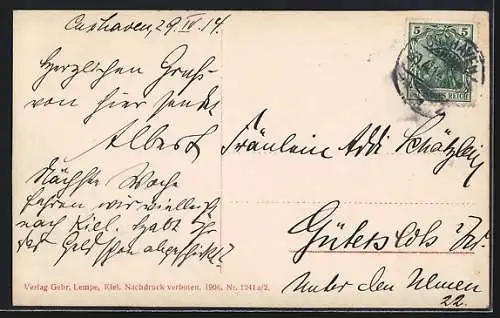 Cuxhaven, 29. IV. 14.
Herzlichen Gruß
von hier sendet
Albert
Nächste Woche
fahren wir vielleicht
nach Kiel. Habt Ihr
das Geld schon abgeschickt?
Fräulein Addi Schätzlein
Gütersloh i/W.
Unter den Ulmen
22.
5 5
DEUTSCHES REICH
CUXHAVEN
Verlag Gebr. Lempe, Kiel. Nachdruck verboten. 1906. Nr. 1241 a/2.